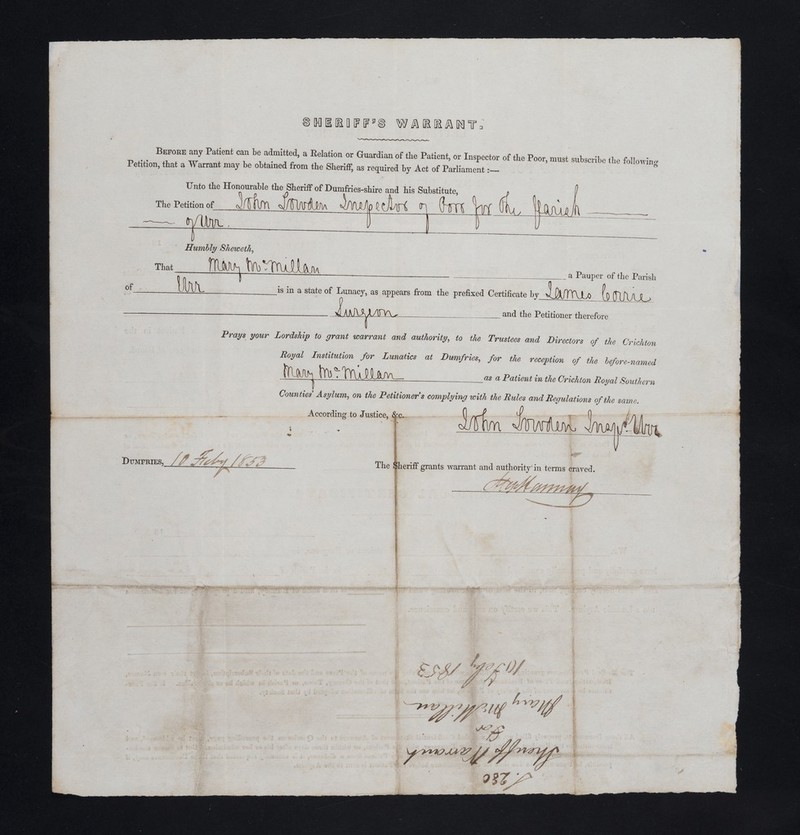 SHERIFF'S WARRANT.
BEFORE any Patient can be admitted, a Relation or Guardian of the Patient, or Inspector of the Poor, must subscribe the following
Petition, that a Warrant may be obtained from the Sheriff, as required by Act of Parliament:—
Unto the Honourable the Sheriff of Dumfries-shire and his Substitute,
The Petition of John Lowden Inspector of Poor for the Parish
of Urr.
Humbly Sheweth,
That Mary McMillan a Pauper of the Parish
of Urr is in a state of Lunacy, as appears from the prefixed Certificate by James Corrie
Surgeon and the Petitioner therefore
Prays your Lordship to grant warrant and authority, to the Trustees and Directors of the Crichton
Royal Institution for Lunatics at Dumfries, for the reception of the before-named
Mary McMillan as a Patient in the Crichton Royal Southern
Counties' Asylum, on the Petitioner's complying with the Rules and Regulations of the same.
According to Justice, &c.
John Lowden Inspr. Urr
DUMFRIES, 10 Feby 1853
The Sheriff grants warrant and authority in terms craved.
J. 280
Sheriff Warrant
For
Mary McMillan
10 Feby 1853